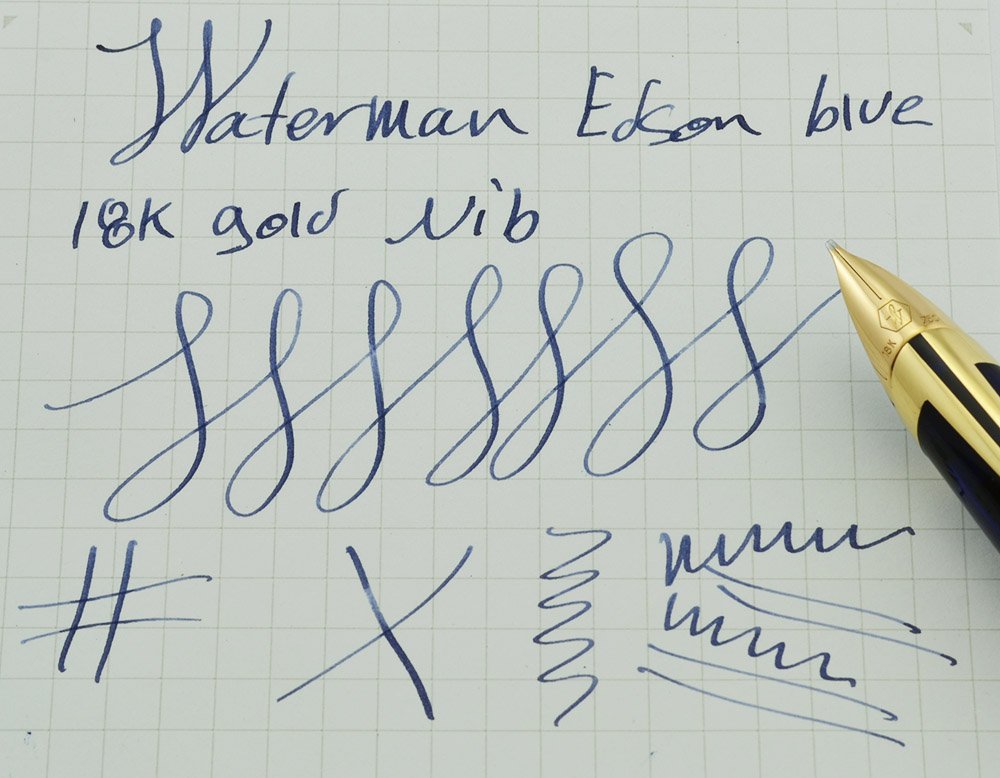 Waterman Edson blue
18K gold Nib
18K 750